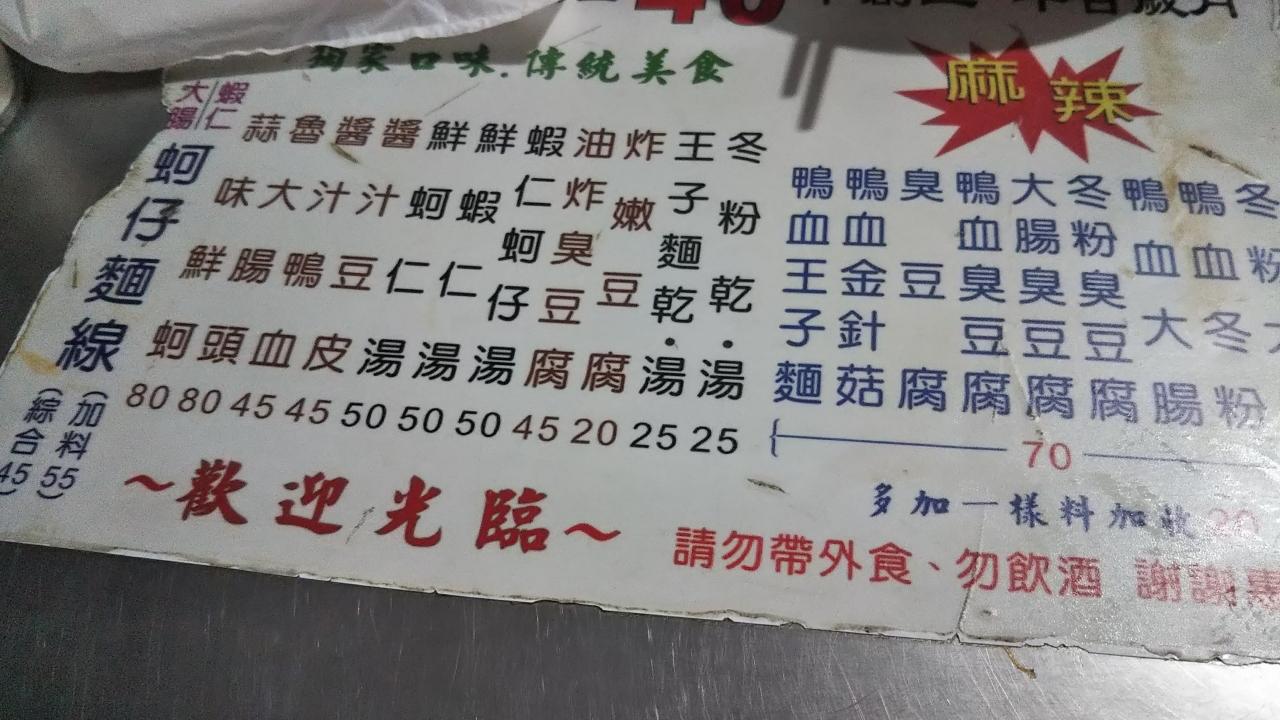 獨家口味.傳統美食
麻辣
大腸/蝦仁
蚵仔麵線
(綜合45)
(加料55)
蒜味鮮蚵 80
魯大腸頭 80
醬汁鴨血 45
醬汁豆皮 45
鮮蚵仁湯 50
鮮蝦仁湯 50
蝦仁蚵仔湯 50
油炸臭豆腐 45
炸嫩豆腐 20
王子麵乾.湯 25
冬粉乾.湯 25
鴨血王子麵
鴨血金針菇
臭豆腐
鴨血臭豆腐
大腸臭豆腐
冬粉臭豆腐
鴨血大腸
鴨血冬粉
冬粉
70
多加一樣料加收20
~歡迎光臨~
請勿帶外食、勿飲酒 謝謝